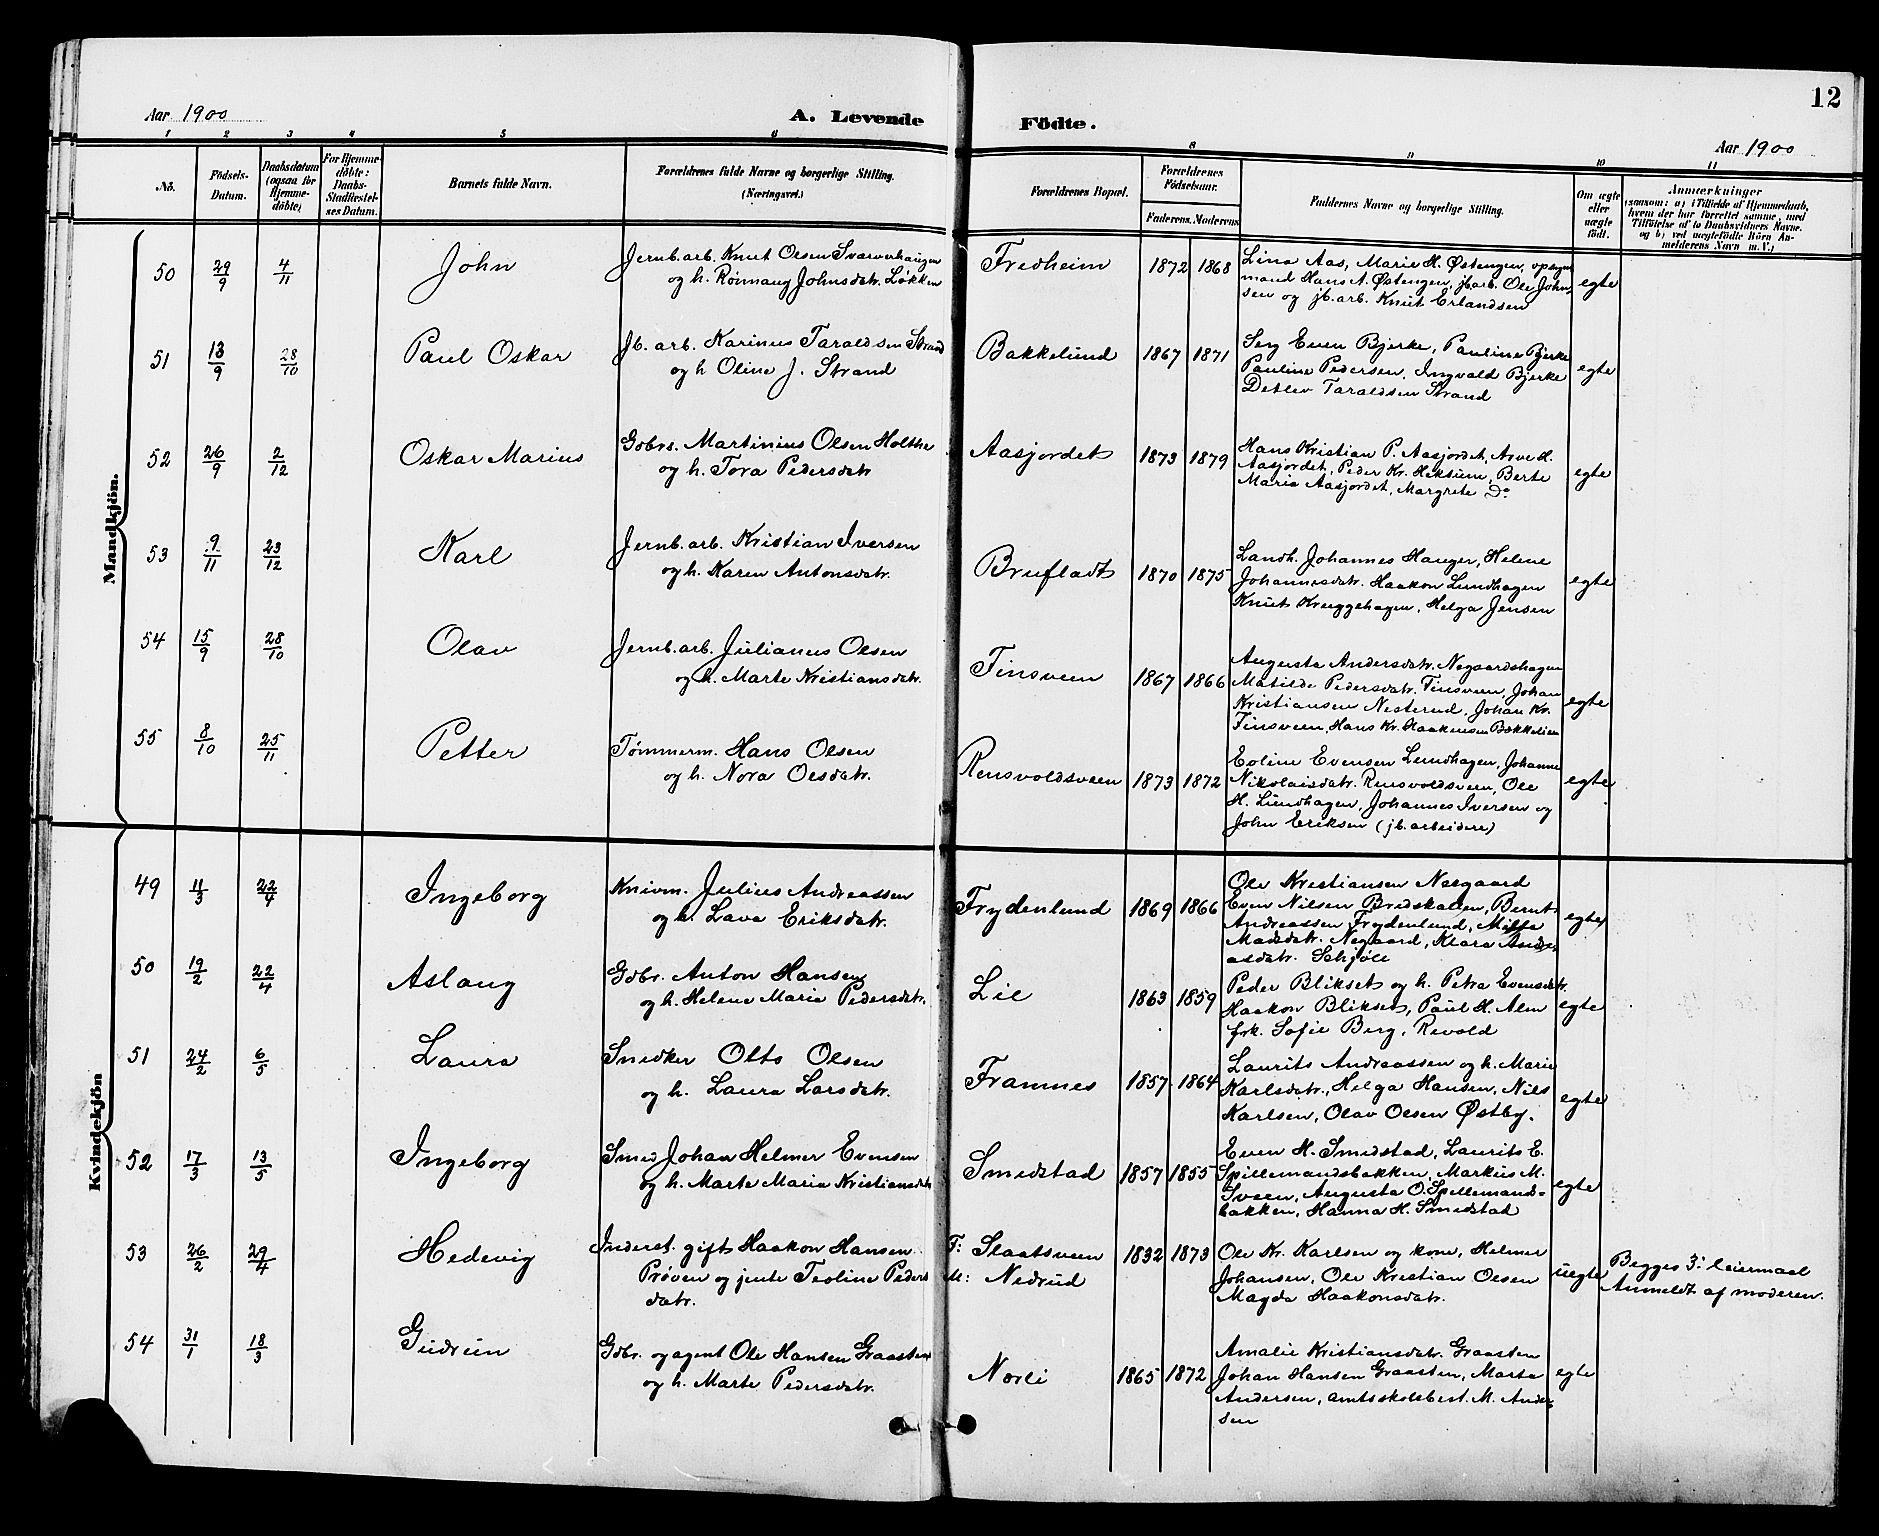 12
Aar 1900
A. Levende Födte.
Aar 1900
1 2 3 4 5 6 8 9 10 11
No. Födsels-Datum. Daabsdatum (ogsaa for Hjemme-döbte) For Hjemme-döbte: Daabs-Stadfæstel-ses Datum. Barnets fulde Navn. Forældrenes fulde Navne og borgerlige Stilling. (Næringsvei.) Forældrenes Bopæl. Forældrenes Födselsaar. Faderens. Moderens. Faddernes Navne og borgerlige Stilling. Om ægte eller uægte födt. Anmærkninger (saasom: a) i Tilfælde af Hjemmedaab, hvem der har forrettet samme, med Tilföielse af to Daabsvidners Navne, og b) ved uægtefödte Börn An-melderens Navn m. V.)
Mandkjön.
50 29/9 4/11 John
Jernb. arb. Knut Olsen Svarverhaugen
og h. Rønnaug Johnsdatr. Løkken
Fredheim 1872 1868
Lina Aas, Marie H. Østengen, opsyns
mand Hans A. Østengen, jb. arb. Ole John
sen og jb. arb. Knut Erlandsen
egte
51 13/9 28/10 Paul Oskar
Jb. arb. Karinus Taraldsen Strand
og h Oline J. Strand
Bakkelund 1867 1871
Serg Even Bjerke, Pauline Bjerke
Pauline Pedersen, Ingvald Bjerke
Detlev Taraldsen Strand
egte
52 26/9 2/12 Oskar Marius
Gdbrs. Martinius Olsen Holthe
og h. Tora Pedersdatr
Aasjordet 1873 1879
Hans Kristian P. Aasjordet, Arve H.
Aasjordet, Peder Kr. Heksum, Berte
Maria Aasjordet, Margrete Do
egte
53 9/11 23/12 Karl
Jernb. arb. Kristian Iversen
og h. Karen Antonsdatr.
Brufladt 1870 1875
Landh. Johannes Hauger, Helene
Johannesdatr. Haakon Lundhagen
Knut Kruggehagen, Helga Jensen
egte
54 15/9 28/10 Olav
Jernb. arb. Julianus Olsen
og h. Marte Kristiansdatr.
Finsveen 1867 1866
Augusta Andersdatr. Negaardshagen
Matilde Pedersdatr. Finsveen, Johan
Kristiansen Nesterud, Johan Kr.
Finsveen, Hans Kr. Haakensen Bakkelien
egte
55 8/10 25/11 Petter
Tømmerm. Hans Olsen
og h. Nora Olsdatr.
Rensvoldsveen 1873 1872
Eoline Evensen Lundhagen, Johanne
Nikolaisdatr. Rensvoldsveen, Ole
H. Lundhagen, Johannes Iversen og
John Eriksen (jb. arbeidere)
egte
Kvindekjön
49 11/3 22/4 Ingeborg
Knivm. Julius Andreassen
og h. Lava Eriksdatr.
Frydenlund 1869 1866
Ole Kristiansen Nesgaard
Even Nilsen Bredskallen, Bernt
Andreassen Frydenlund, Milla
Madsdatr. Negaard, Klara Andre
asdatr. Schjøll
egte
50 19/2 22/4 Aslaug
Gdbr. Anton Hansen
og h. Helene Marie Pedersdatr.
Lie 1863 1859
Peder Blikset og h. Petra Evensdatr.
Haakon Blikset, Paul H. Alm
frk. Sofie Berg, Revold
egte
51 24/2 6/5 Laura
Snedker Otto Olsen
og h. Laura Larsdatr.
Framnes 1857 1864
Laurits Andreassen og h. Marie
Karlsdatr., Helga Hansen, Nils
Karlsen, Olav Olsen Østby.
egte
52 17/3 13/5 Ingeborg
Smed Johan Helmer Evensen
og h. Marte Maria Kristiansdatr
Smedstad 1857 1855
Even H. Smedstad, Laurits E.
Spillemandsbakken, Markus M.
Sveen, Augusta O. Spillemands-
bakken, Hanna H. Smedstad
egte
53 26/2 29/4 Hedevig
Inderst. gift Haakon Hansen
Prøven og jente Teoline Peders
datr.
F: Slaatsveen
M: Nedrud
1832 1873
Ole Kr. Karlsen og kone, Helmer
Johansen, Ole Kristian Olsen
Magda Haakonsdatr.
uegte
Begges 3: leiermaal
Anmeldt af moderen.
54 31/1 18/3 Gudrun
Gdbr. og agent Ole Hansen Graasten
og h. Marte Pedersdatr.
Norli 1865 1872
Amalie Kristiansdatr. Graasten
Johan Hansen Graasten, Marta
Andersen, amtsskolebest. M. Ander
sen
egte